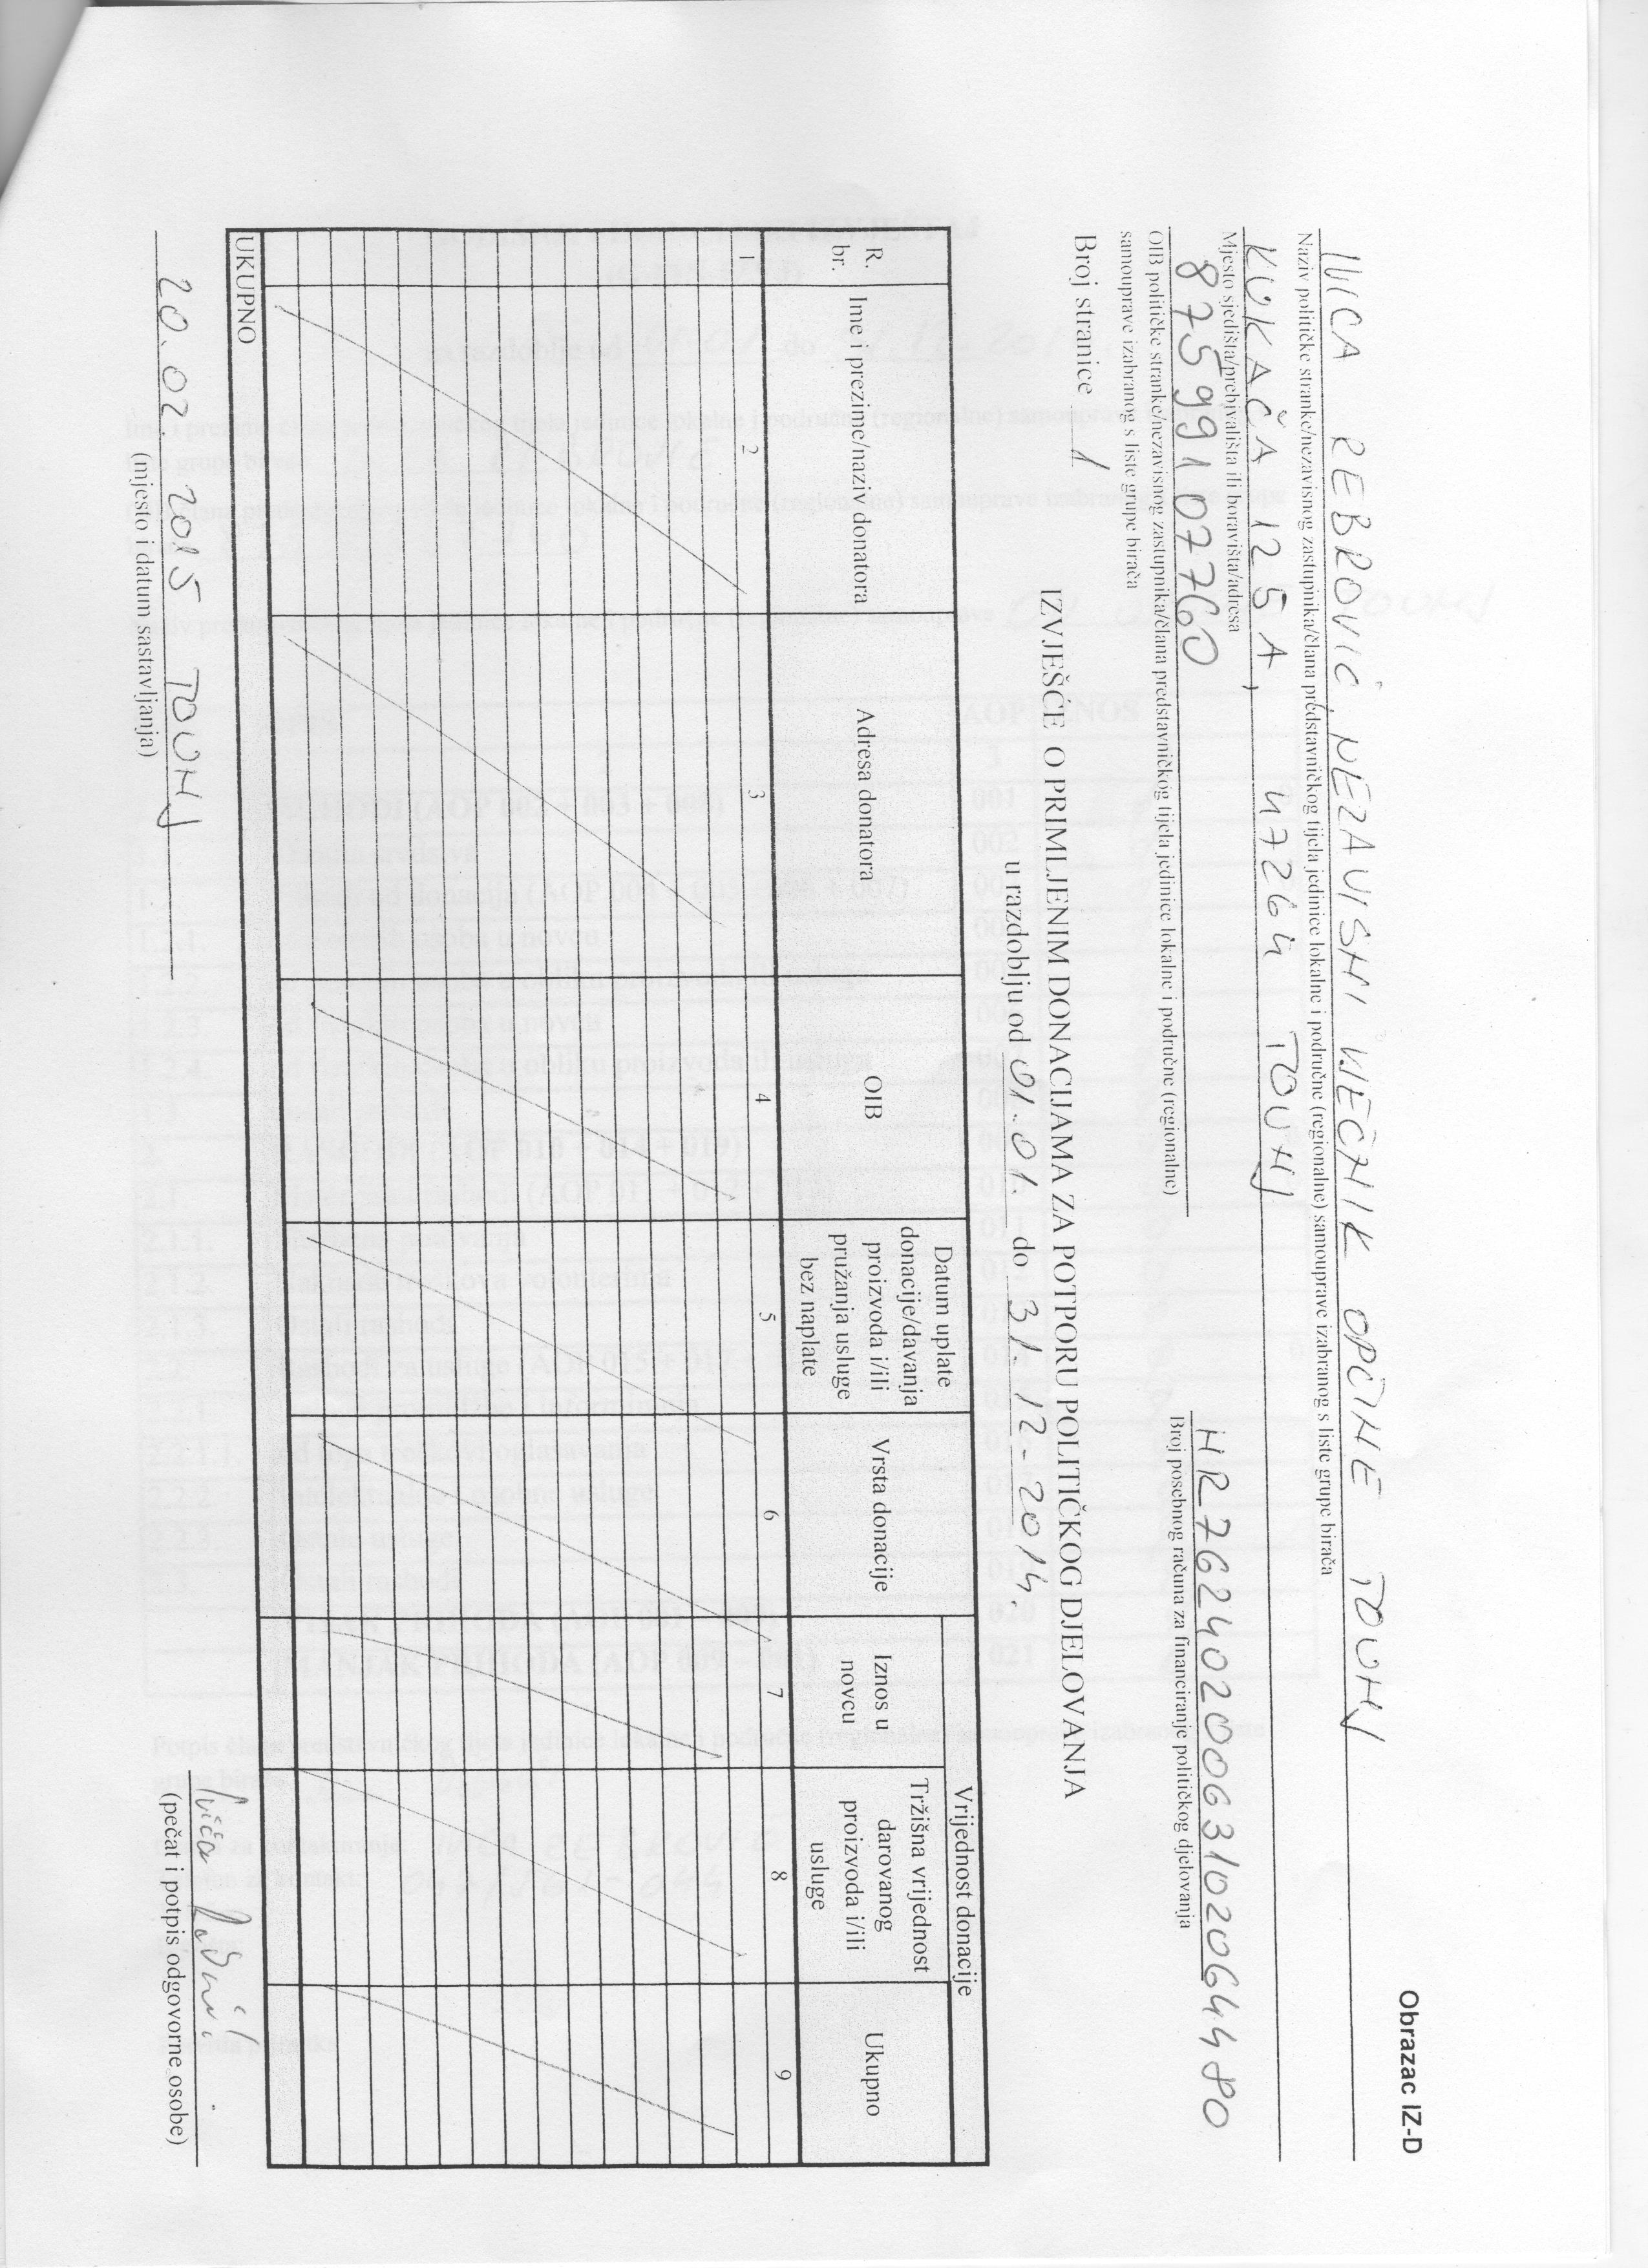 Obrazac IZ-D
IVICA REBROVIĆ, NEZAVISNI VIJEĆNIK OPĆINE TOUNJ
Naziv političke stranke/nezavisnog zastupnika/člana predstavničkog tijela jedinice lokalne i područne (regionalne) samouprave izabranog s liste grupe birača
KUKAČA 125A, 47264 TOUNJ
Mjesto sjedišta/prebivališta ili boravišta/adresa
87599107760
HR7624020063102064480
OIB političke stranke/nezavisnog zastupnika/člana predstavničkog tijela jedinice lokalne i područne (regionalne)
samouprave izabranog s liste grupe birača
Broj posebnog računa za financiranje političkog djelovanja
Broj stranice 1
IZVJEŠĆE O PRIMLJENIM DONACIJAMA ZA POTPORU POLITIČKOG DJELOVANJA
u razdoblju od 01.01. do 31.12-2014.
R. br.
Ime i prezime/naziv donatora
Adresa donatora
OIB
Datum uplate
donacije/davanja
proizvoda i/ili
pružanja usluge
bez naplate
Vrsta donacije
Vrijednost donacije
Iznos u
novcu
Tržišna vrijednost
darovanog
proizvoda i/ili
usluge
Ukupno
1 2 3 4 5 6 7 8 9
UKUPNO
20.02.2015 TOUNJ
(mjesto i datum sastavljanja)
(pečat i potpis odgovorne osobe)